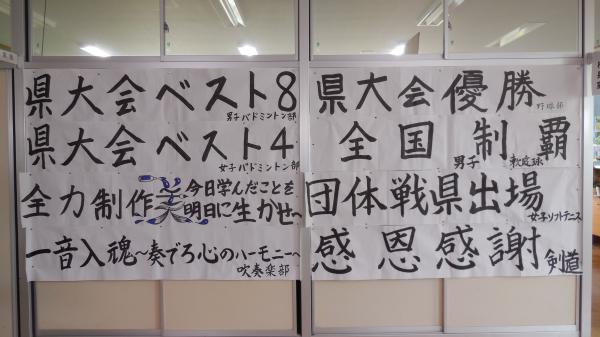 県大会ベスト8
男子バドミントン部
県大会ベスト4
女子バドミントン部
全力制作 美 今日学んだことを
明日に生かせ〜
一音入魂〜奏でろ心のハーモニー〜
吹奏楽部
県大会優勝
野球部
全国制覇
男子 軟庭球
団体戦県出場
女子ソフトテニス
感恩感謝
剣道